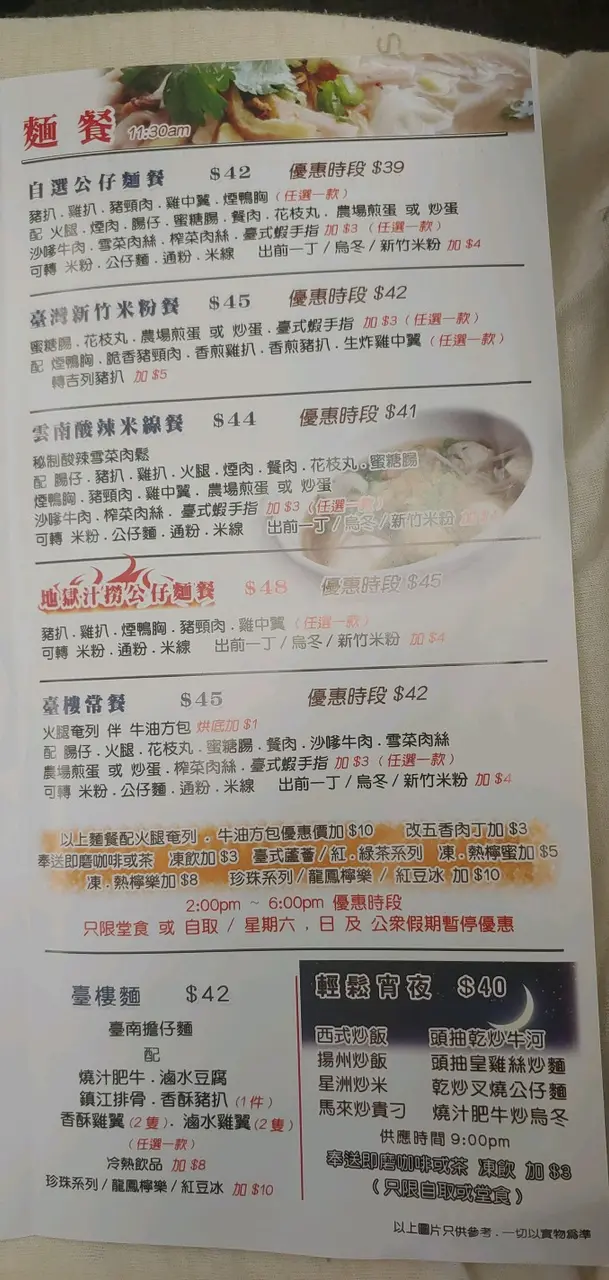 麵餐 11:30am
自選公仔麵餐 $42 優惠時段 $39
豬扒 . 雞扒 . 豬頸肉 . 雞中翼 . 煙鴨胸 (任選一款)
配 火腿 . 煙肉 . 腸仔 . 蜜糖腸 . 餐肉 . 花枝丸 . 農場煎蛋 或 炒蛋
沙嗲牛肉 . 雪菜肉絲 . 榨菜肉絲 . 臺式蝦手指 加 $3 (任選一款)
可轉 米粉 . 公仔麵 . 通粉 . 米線 出前一丁 / 烏冬 / 新竹米粉 加 $4
臺灣新竹米粉餐 $45 優惠時段 $42
蜜糖腸 . 花枝丸 . 農場煎蛋 或 炒蛋 . 臺式蝦手指 加 $3 (任選一款)
配 煙鴨胸 . 脆香豬頸肉 . 香煎雞扒 . 香煎豬扒 . 生炸雞中翼 (任選一款)
轉吉列豬扒 加 $5
雲南酸辣米線餐 $44 優惠時段 $41
秘制酸辣雪菜肉鬆
配 腸仔 . 豬扒 . 雞扒 . 火腿 . 煙肉 . 餐肉 . 花枝丸 . 蜜糖腸
煙鴨胸 . 豬頸肉 . 雞中翼 . 農場煎蛋 或 炒蛋
沙嗲牛肉 . 榨菜肉絲 . 臺式蝦手指 加 $3 (任選一款)
可轉 米粉 . 公仔麵 . 通粉 . 米線 出前一丁 / 烏冬 / 新竹米粉
地獄汁撈公仔麵餐 $48 優惠時段 $45
豬扒 . 雞扒 . 煙鴨胸 . 豬頸肉 . 雞中翼 (任選一款)
可轉 米粉 . 通粉 . 米線 出前一丁 / 烏冬 / 新竹米粉 加 $4
臺樓常餐 $45 優惠時段 $42
火腿奄列 伴 牛油方包 烘底加 $1
配 腸仔 . 火腿 . 花枝丸 . 蜜糖腸 . 餐肉 . 沙嗲牛肉 . 雪菜肉絲
農場煎蛋 或 炒蛋 . 榨菜肉絲 . 臺式蝦手指 加 $3 (任選一款)
可轉 米粉 . 公仔麵 . 通粉 . 米線 出前一丁 / 烏冬 / 新竹米粉 加 $4
以上麵餐配火腿奄列 . 牛油方包優惠價加 $10 改五香肉丁加 $3
奉送即磨咖啡或茶 凍飲加 $3 臺式蘆薈 / 紅 . 綠茶系列 凍 . 熱檸蜜加 $5
凍 . 熱檸樂加 $8 珍珠系列 / 龍鳳檸樂 / 紅豆冰 加 $10
2:00pm ~ 6:00pm 優惠時段
只限堂食 或 自取 / 星期六 , 日 及 公眾假期暫停優惠
臺樓麵 $42
臺南擔仔麵
配
燒汁肥牛 . 滷水豆腐
鎮江排骨 . 香酥豬扒 (1 件)
香酥雞翼 (2 隻) . 滷水雞翼 (2 隻)
(任選一款)
冷熱飲品 加 $8
珍珠系列 / 龍鳳檸樂 / 紅豆冰 加 $10
輕鬆宵夜 $40
西式炒飯 頭抽乾炒牛河
揚州炒飯 頭抽皇雞絲炒麵
星洲炒米 乾炒叉燒公仔麵
馬來炒貴刁 燒汁肥牛炒烏冬
供應時間 9:00pm
奉送即磨咖啡或茶 凍飲 加 $3
(只限自取或堂食)
以上圖片只供參考 . 一切以實物為準